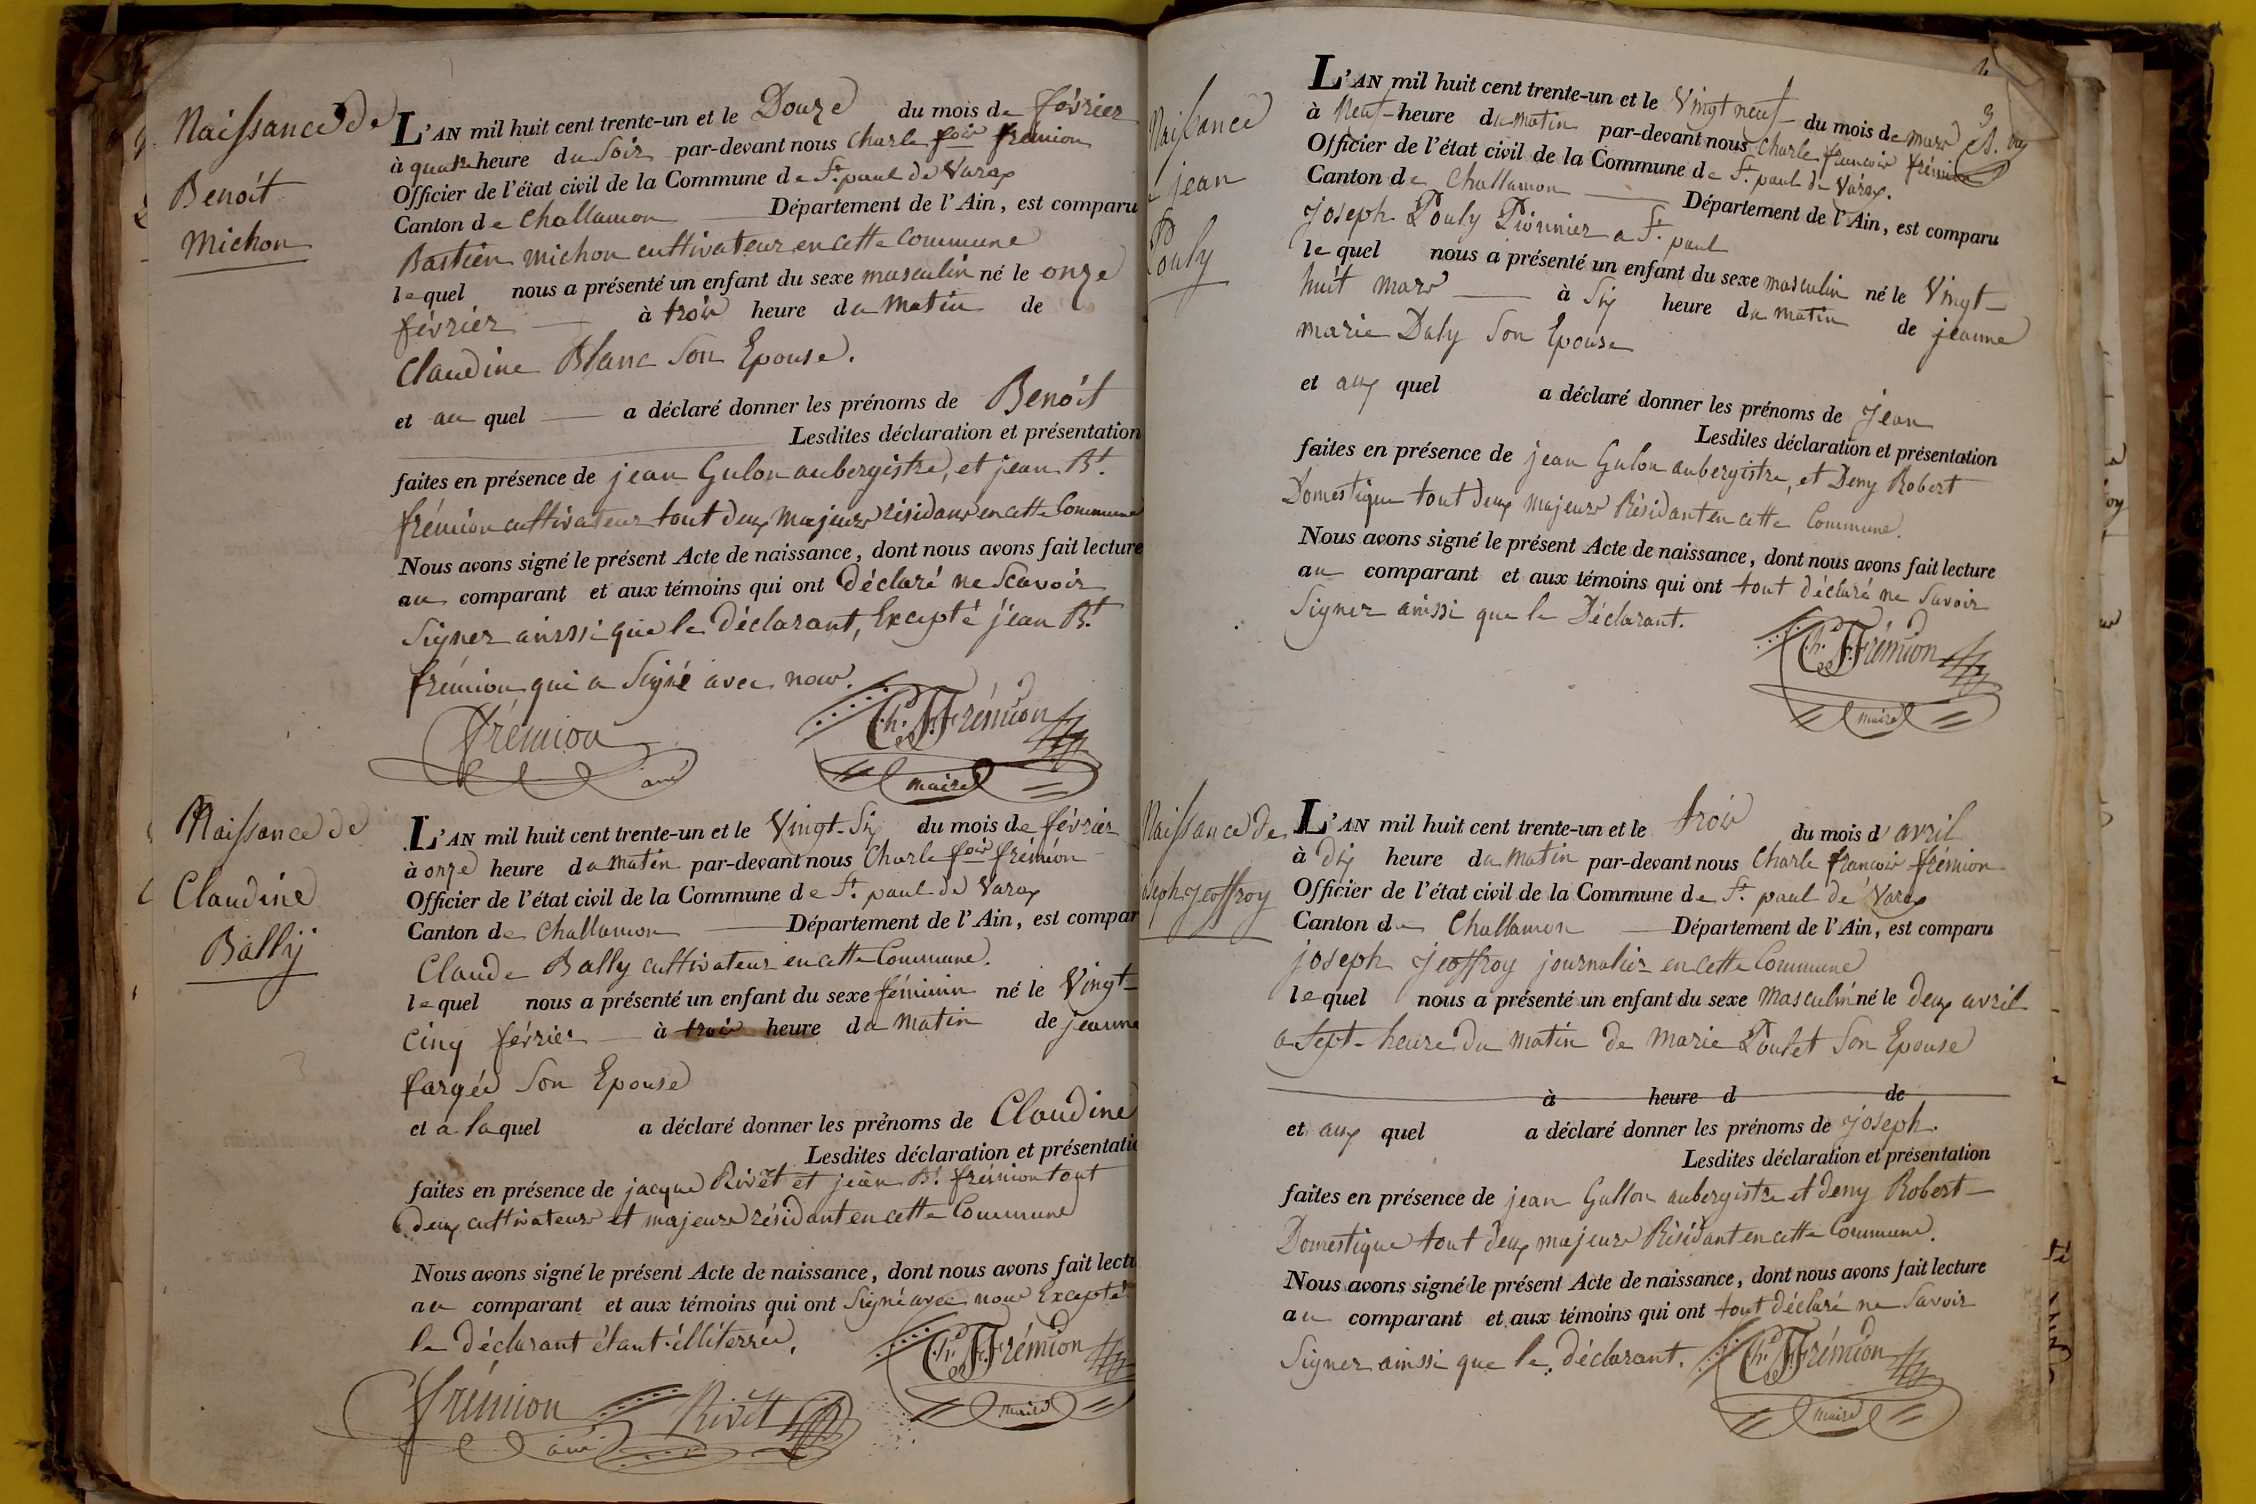 Naissance de
Benoit
Michon
L'AN mil huit cent trente-un et le Douze du mois de février
à quatre heure du Soir par-devant nous Charle fois frémion
Officier de l'état civil de la Commune de St. paul de Varax
Canton de Challamon Département de l'Ain, est comparu
Bastien michon cultivateur en cette commune
le quel nous a présenté un enfant du sexe masculin né le onze
février à trois heure du matin de
Claudine Blanc Son Epouse.
et au quel a déclaré donner les prénoms de Benoit
Lesdites déclaration et présentation
faites en présence de jean Gulon aubergistre, et jean Bt.
frémion cultivateur tout deux majeurs résidans en cette Commune
Nous avons signé le présent Acte de naissance, dont nous avons fait lecture
au comparant et aux témoins qui ont déclaré ne Scavoir
Signer ainssi que le Déclarant, Excepté jean Bt.
frémion qui a Signé avec nous.
frémion
ainé
Ch. F. Frémion
maire
Naissance de
Claudine
Bally
L'AN mil huit cent trente-un et le Vingt-Six du mois de février
à onze heure du matin par-devant nous Charle fois frémion
Officier de l'état civil de la Commune de St. paul de Varax
Canton de Challamon Département de l'Ain, est compar
Claude Bally cultivateur en cette Commune.
le quel nous a présenté un enfant du sexe féminin né le Vingt-
cinq février à trois heure du matin de jeanne
fargée Son Epouse
et a laquel a déclaré donner les prénoms de Claudine
Lesdites déclaration et présentatio
faites en présence de jacque Rivet et jean Bt. frémion tout
deux cultivateurs et majeurs résidant en cette Commune
Nous avons signé le présent Acte de naissance, dont nous avons fait lectu
au comparant et aux témoins qui ont Signé avec nous Excepté
le déclarant étant illiterrée.
frémion
ainé
Rivet
Ch. F. Frémion
maire
3
Naissance
jean
Pouly
L'AN mil huit cent trente-un et le Vingt neuf du mois de mars
à Neuf heure du matin par-devant nous Charle francois frémion
Officier de l'état civil de la Commune de St. paul de Varax.
Canton de Challamon Département de l'Ain, est comparu
joseph Pouly Pionnier a St. paul
le quel nous a présenté un enfant du sexe masculin né le Vingt-
huit mars à Six heure du matin de jeanne
marie Daly Son Epouse
et aux quel a déclaré donner les prénoms de jean
Lesdites déclaration et présentation
faites en présence de jean Gulon aubergistre, et Deny Robert
Domestique tout deux majeurs Résidant en cette Commune.
Nous avons signé le présent Acte de naissance, dont nous avons fait lecture
au comparant et aux témoins qui ont tout déclaré ne Savoir
Signer ainssi que le Déclarant.
Ch. F. Frémion
maire
Naissance de
oseph jeoffroy
L'AN mil huit cent trente-un et le trois du mois d'avril
à Dix heure du matin par-devant nous Charle francois frémion
Officier de l'état civil de la Commune de St. paul de Varax
Canton de Challamon Département de l'Ain, est comparu
joseph jeoffroy journalier en cette Commune
le quel nous a présenté un enfant du sexe masculin né le deux avril
a Sept heure du matin de marie Poulet Son Epouse
à heure d de
et aux quel a déclaré donner les prénoms de joseph.
Lesdites déclaration et présentation
faites en présence de jean Gullon aubergistre et deny Robert
Domestique tout deux majeurs Résidant en cette Commune.
Nous avons signé le présent Acte de naissance, dont nous avons fait lecture
au comparant et aux témoins qui ont tout déclaré ne Savoir
Signer ainssi que le déclarant.
Ch. F. Frémion
maire